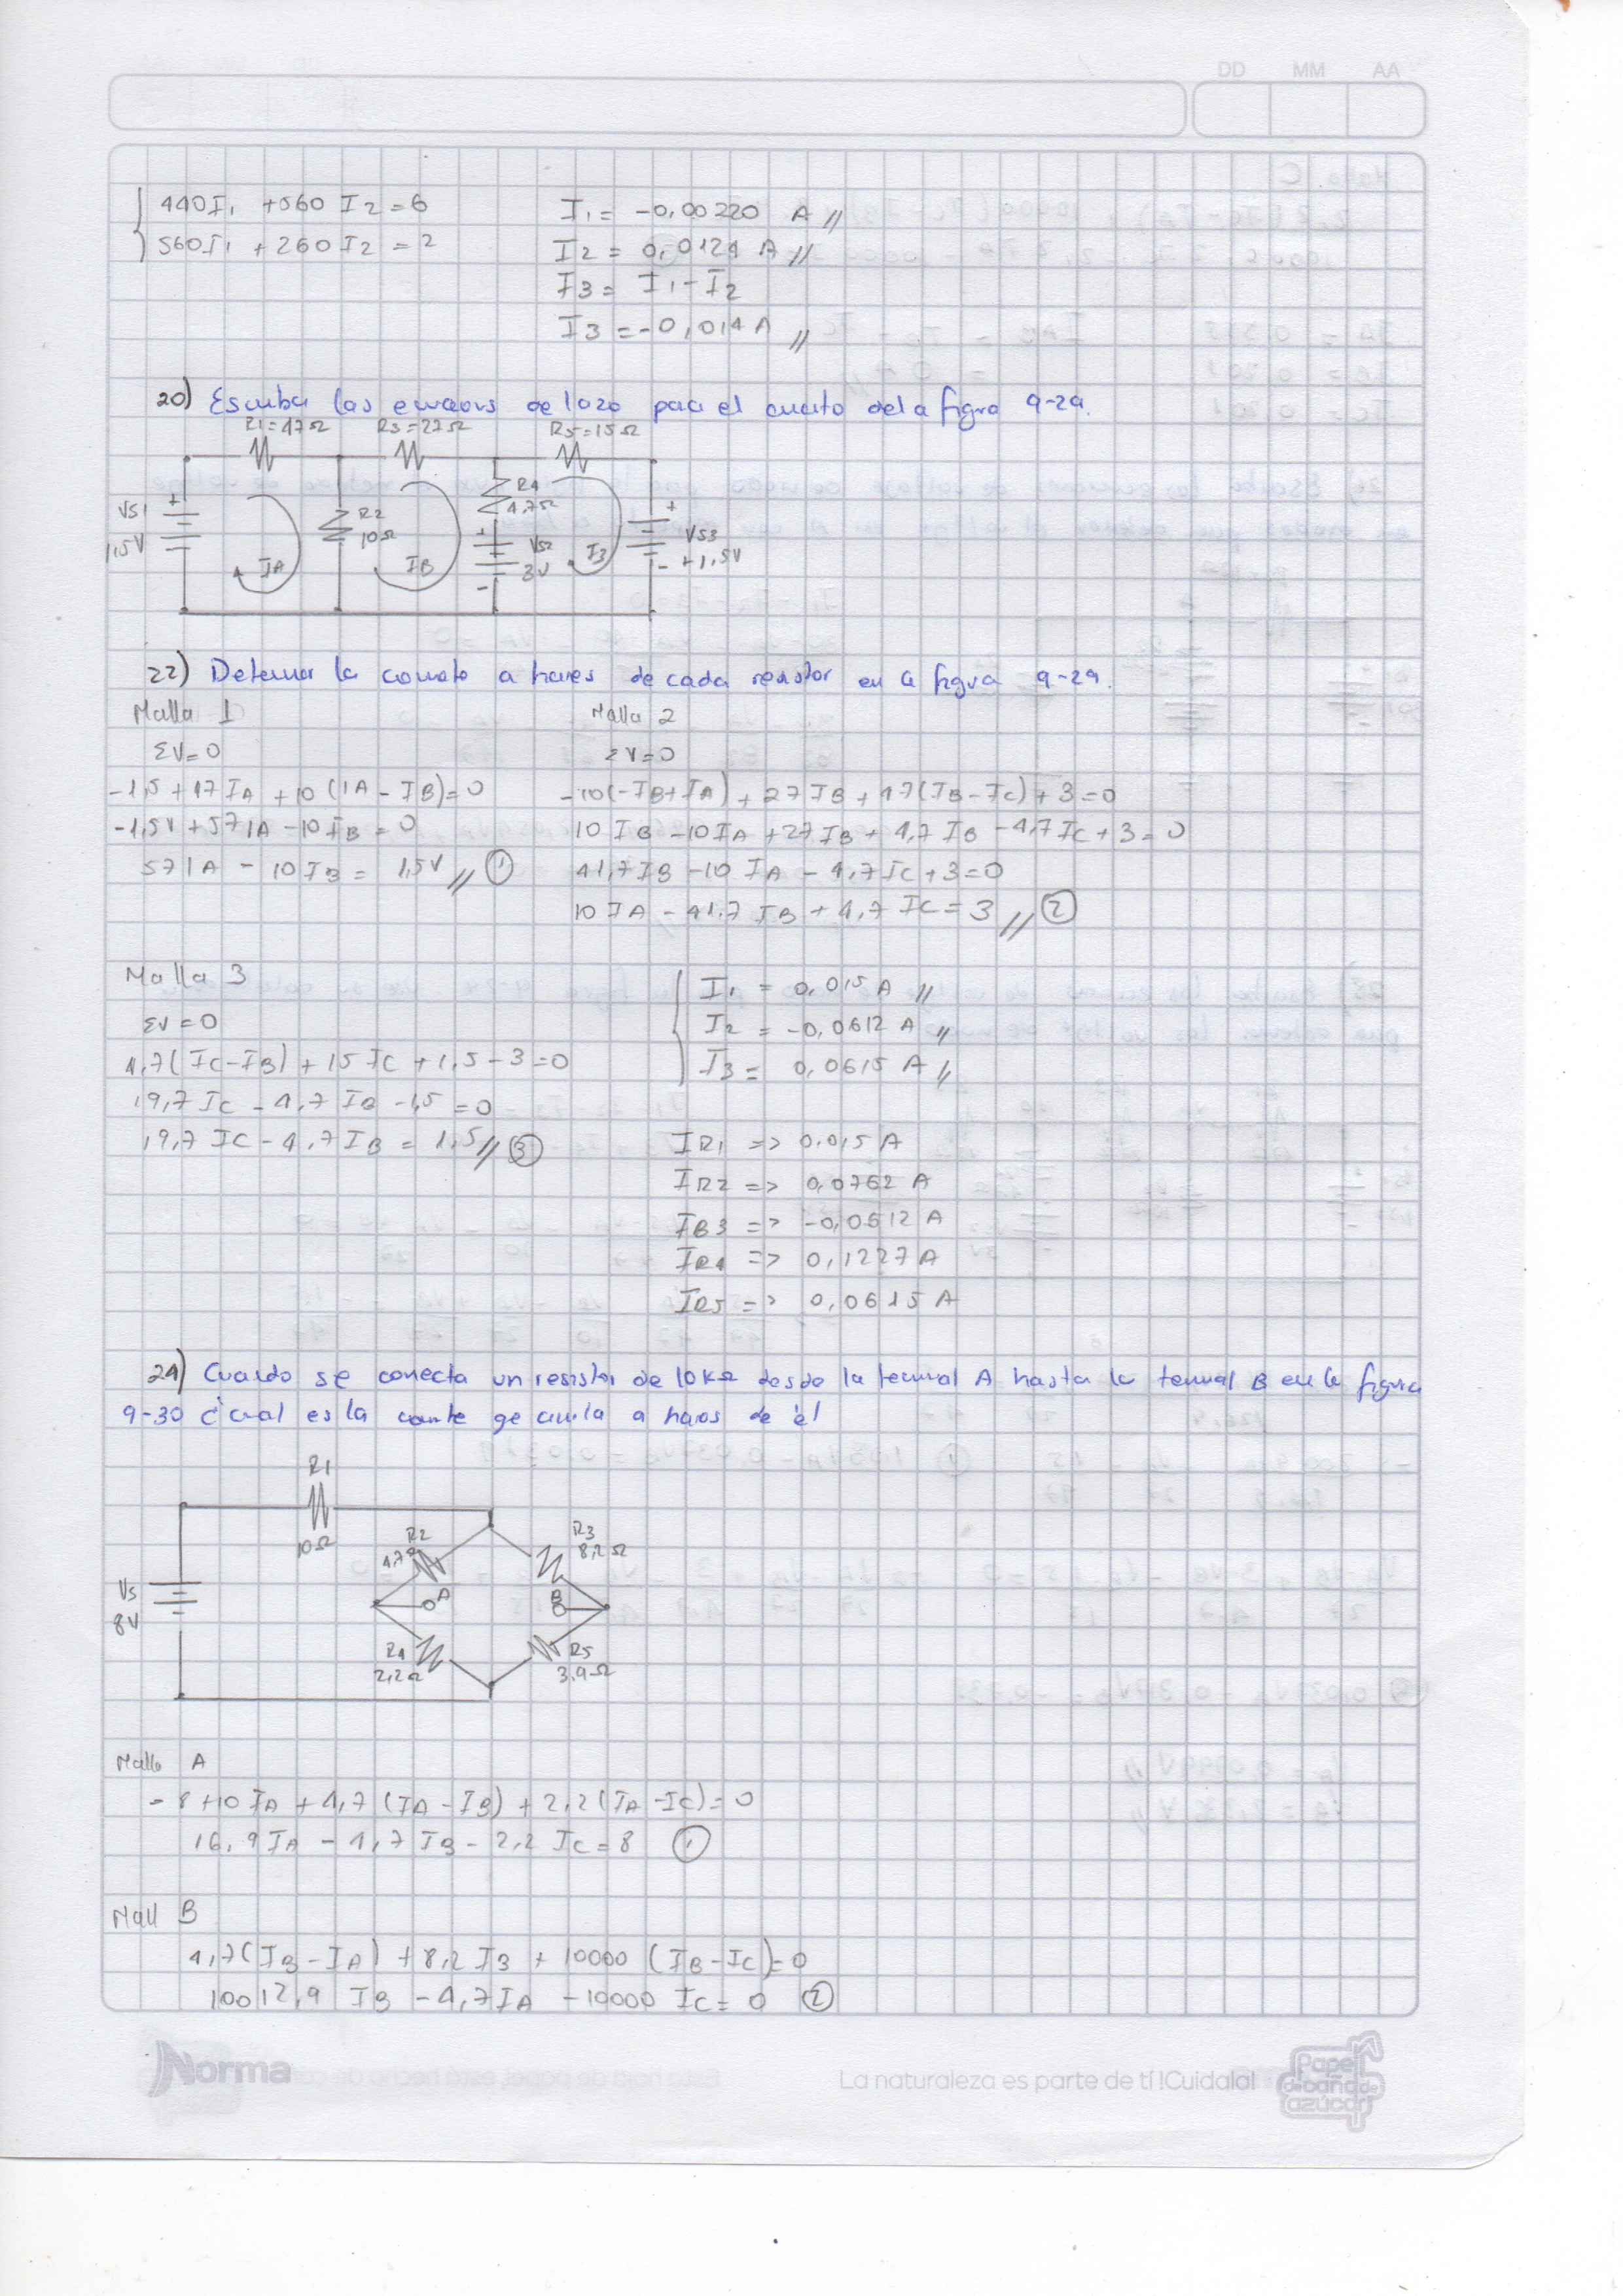 DD MM AA
440I1 + 560 I2 = 6
560I1 + 260 I2 = 2
I1 = -0,00220 A //
I2 = 0,0124 A //
I3 = I1 - I2
I3 = -0,014 A //
20) Escriba las ecuaciones de lazo para el circuito de la figura 9-29.
R1=47Ω R3=27Ω R5=15Ω
VS1
1,5V
R2
10Ω
R4
4,7Ω
VS2
3V
VS3
+1,5V
IA IB I3
22) Determinar la corriente a traves de cada resistor en la figura 9-29.
Malla 1
ΣV=0
-1,5 + 47 IA + 10 (IA - IB) = 0
-1,5V + 57IA - 10 IB = 0
57IA - 10 IB = 1,5V // ①
Malla 2
ΣV=0
-10(-IB+IA) + 27 IB + 47(IB - IC) + 3 = 0
10 IB - 10 IA + 27 IB + 4,7 IB - 4,7 IC + 3 = 0
41,7IB - 10 IA - 4,7 IC + 3 = 0
10 IA - 41.7 IB + 4,7 IC = 3 // ②
Malla 3
ΣV=0
4,7(IC-IB) + 15 IC + 1,5 - 3 = 0
19,7 IC - 4,7 IB - 1,5 = 0
19,7 IC - 4,7 IB = 1,5 // ③
I1 = 0,015 A //
I2 = -0,0612 A //
I3 = 0,0615 A //
IR1 => 0.015 A
IR2 => 0,0762 A
IB3 => -0,0612 A
IR4 => 0,1227 A
IR5 => 0,0615 A
24) Cuando se conecta un resistor de 10 KΩ desde la terminal A hasta la terminal B en la figura
9-30 ¿cual es la corriente que circula a traves de él
R1
10Ω
VS
8V
R2
4,7Ω
R3
8,2 Ω
A B
R4
2,2Ω
R5
3,9Ω
Malla A
-8 + 10 IA + 4,7 (IA - IB) + 2,2 (IA - IC) = 0
16,9 IA - 4,7 IB - 2,2 IC = 8 ①
Mall B
4,7(IB - IA) + 8,2 IB + 10000 (IB - IC) = 0
10012,9 IB - 4,7 IA - 10000 IC = 0 ②
Norma
La naturaleza es parte de tí !Cuidala!
Papel
de caña de
azúcar